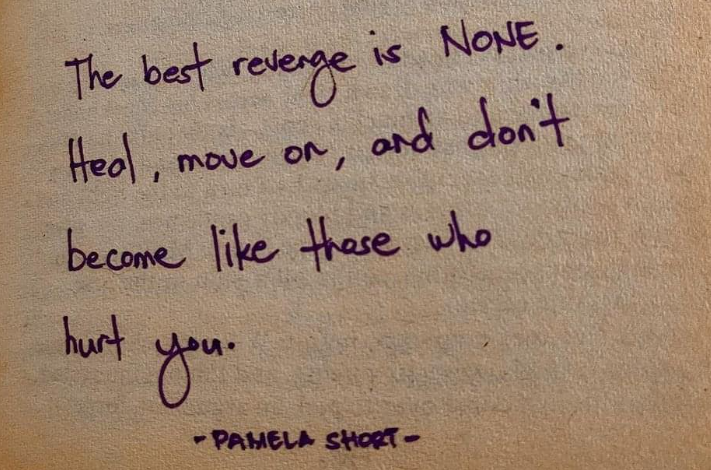 The best revenge is NONE.
Heal, move on, and don't
become like those who
hurt you.
-PAMELA SHORT-